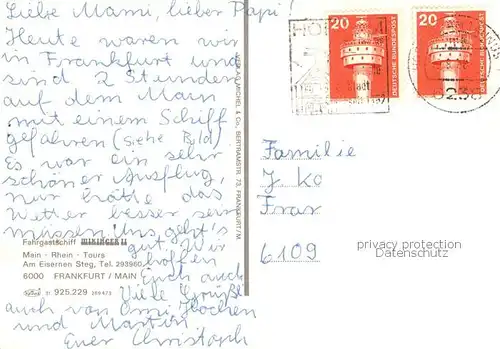 Liebe Mami, lieber Papi!
Heute waren wir
in Frankfurt und
sind 2 Stunden
auf dem Main
mit einem Schiff
gefahren (siehe Bild)
Es war ein sehr
schöner Ausflug,
nur hätte das
Wetter besser sein
müssen. Uns geht's
gut. Wir
hoffen
Euch auch
Viele Grüße
auch von Omi, Jochen
und Martin
Euer Christoph
Fahrgastschiff WIKINGER II
Main - Rhein - Tours
Am Eisernen Steg, Tel. 293960
6000 FRANKFURT / MAIN
21 925.229
& CO., BERTRAMSTR. 73, FRANKFURT/M.
20
DEUTSCHE BUNDESPOST
20
DEUTSCHE BUNDESPOST
Stadt
Familie
J Ko
Frar
6109
privacy protection
Datenschutz